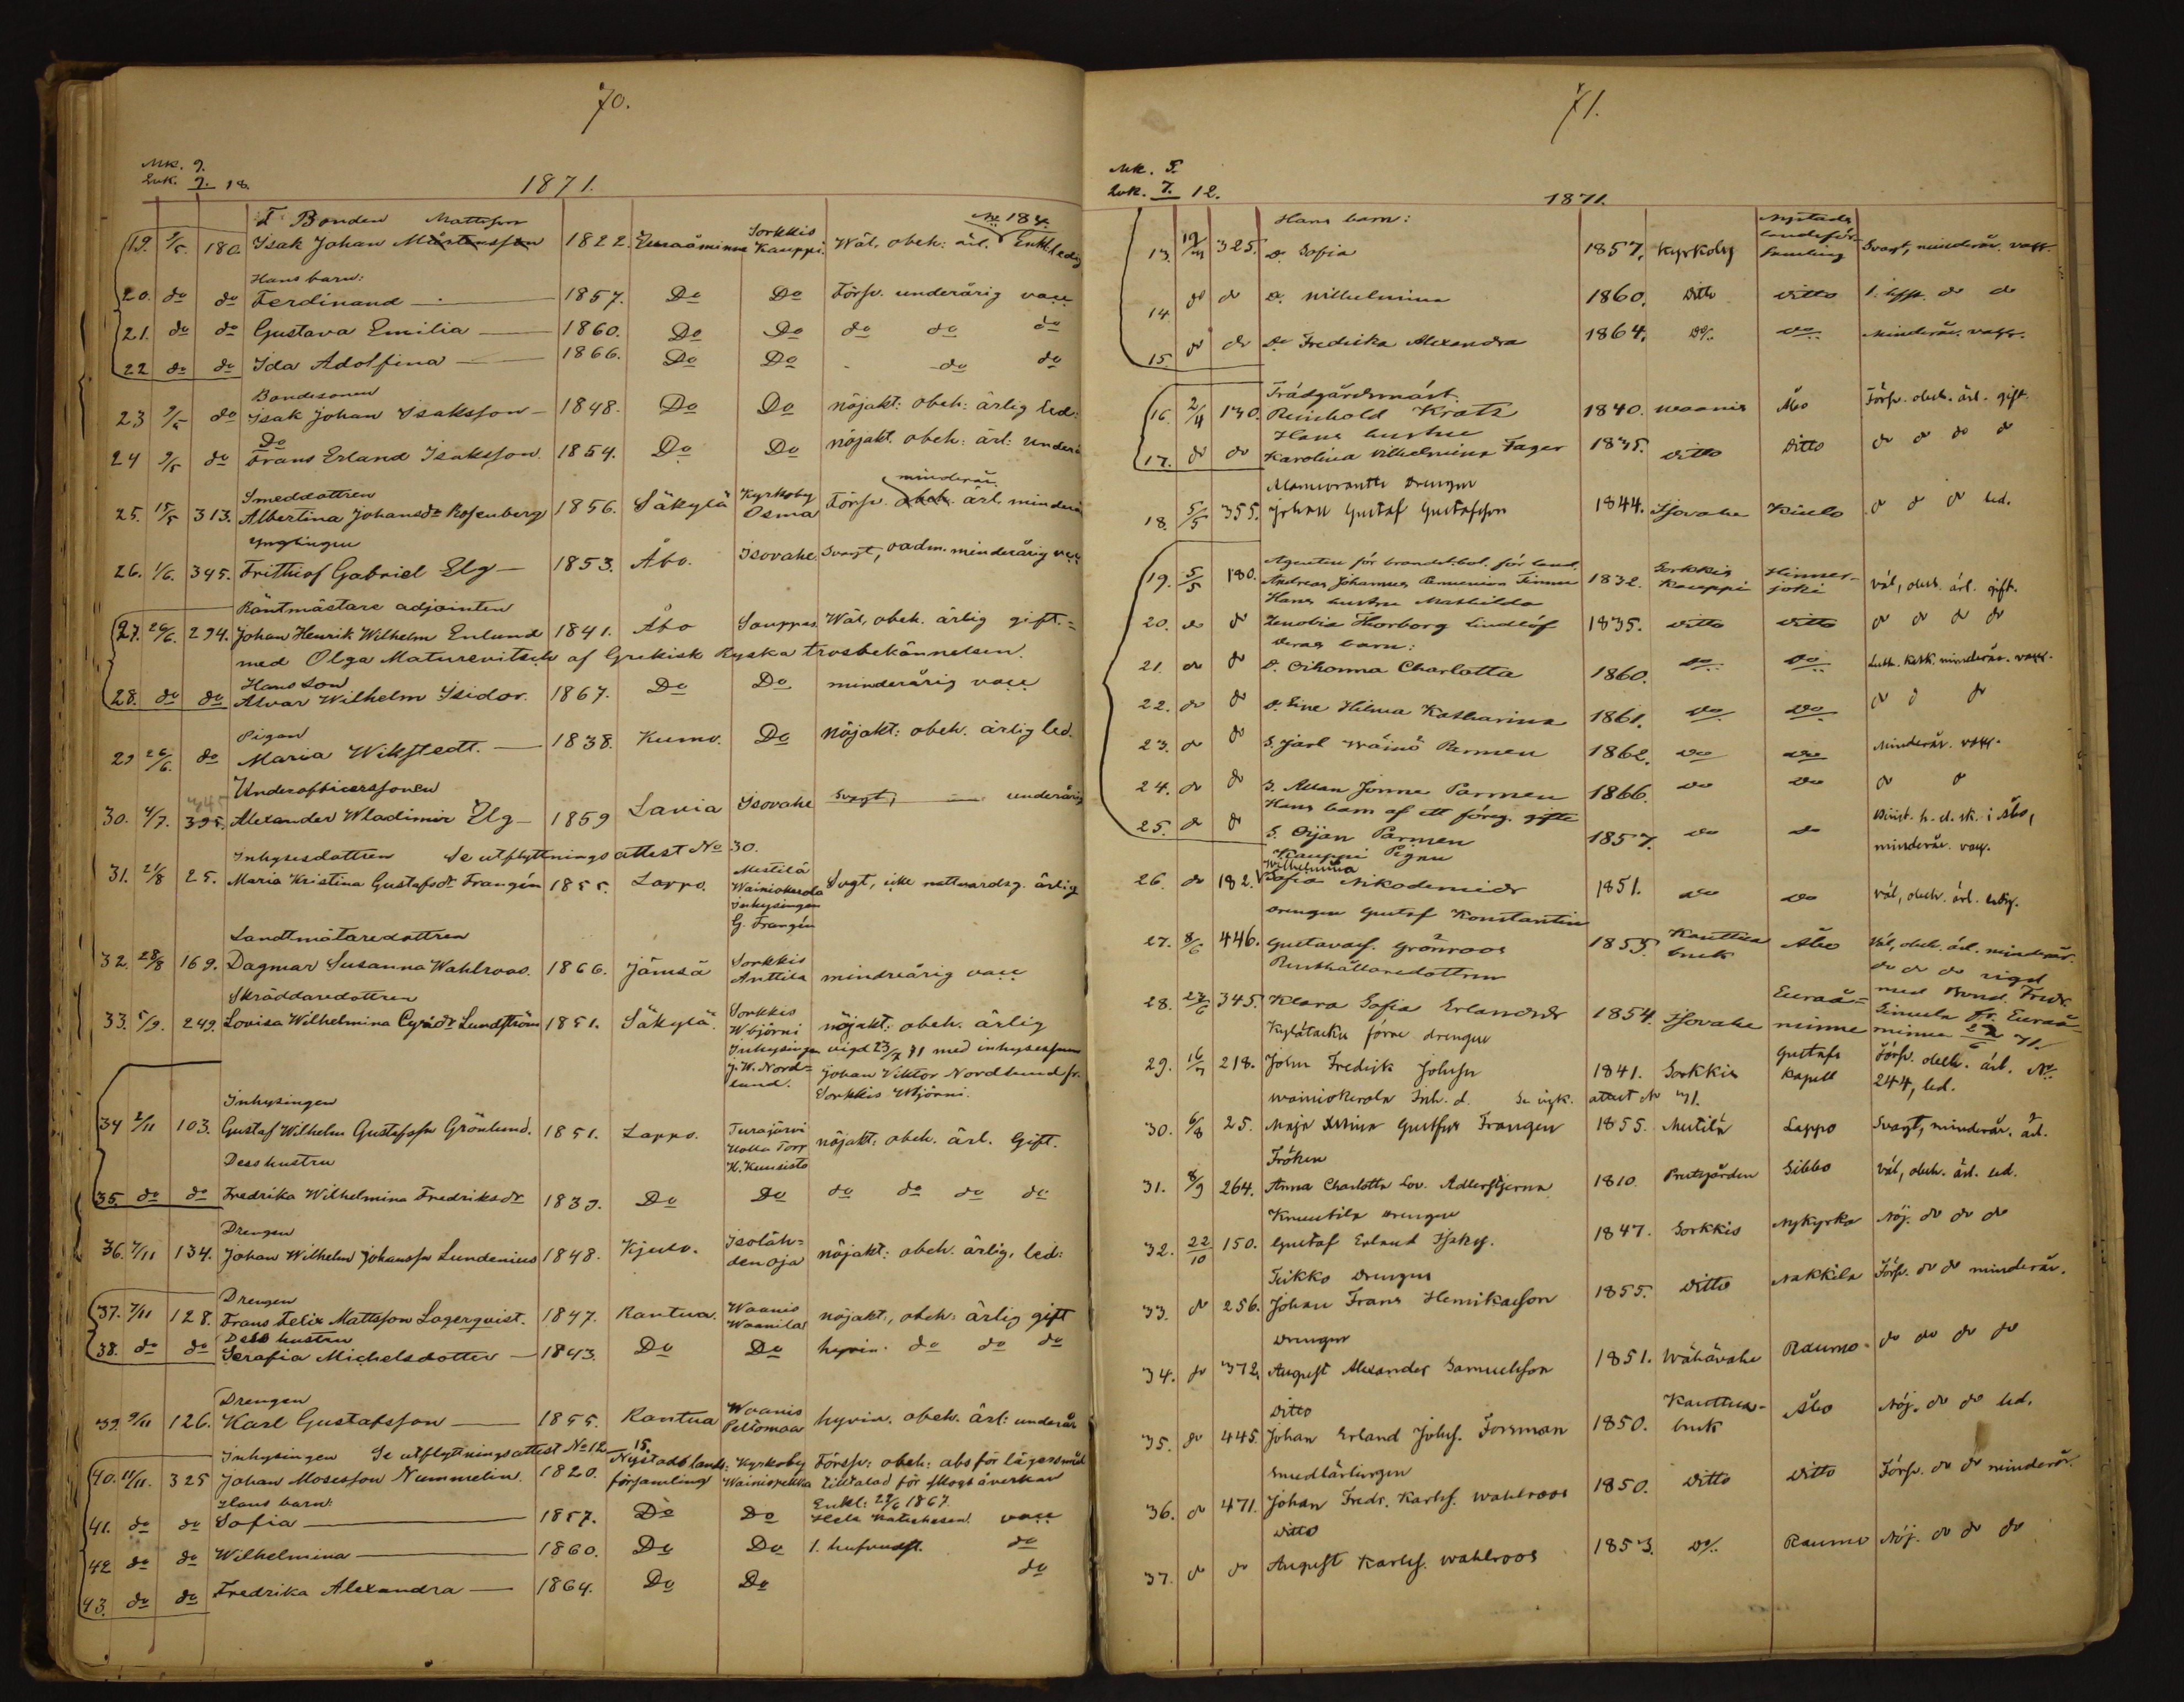 70.
Mk. 9.
Qvk. 9. 18.
1871.
T Bonden Mattsson No 184.
19. 9/5 180. Isak Johan Mårtensson 1822. Euraåminne Sorkkis Kauppi. Wäl, obeh: ärl. Enkl. ledig
Hans barn:
20. do do Ferdinand — 1857. Do Do Försv. underårig vacc
21. do do Gustava Emilia — 1860. Do Do do do do
22 do do Ida Adolfina — 1866. Do Do do do
Bondesonen
23 9/5 do Isak Johan Isaksson — 1848. Do Do nöjakt: obeh: ärlig led:
Do
24 9/5 do Frans Erland Isaksson. 1854. Do Do nöjakt. obeh: ärl: underå
Smeddottren minderår
25. 15/5 313. Albertina Johansdr Rosenberg 1856. Säkylä Kyrkoby Osma Försv. obeh. ärl. minderå
Ynglingen
26. 1/6. 345. Frithiof Gabriel Elg — 1853. Åbo. Isovahe. Svagt, oadm. minderårig vacc
Räntmästare adjointen
27. 26/6. 294. Johan Henrik Wilhelm Enlund 1841. Åbo Sauppas. Wäl, obeh. ärlig gift. =
med Olga Maturevitsch af Grekisk Ryska trosbekännelsen.
Hans son
28. do do Alvar Wilhelm Isidor. 1867. Do Do minderårig vacc
Pigan
29 26/6. do Maria Wikstedt. — 1838. Kumo. Do nöjakt: obeh. ärlig led.
Underofficerssonen
30. 4/7. 345 395. Alexander Wladimir Elg — 1859 Lavia Isovahe svagt, — underårig
Inhysesdottren Se utflyttnings attest No 30.
31. 21/8 25. Maria Kristina Gustafsdr Frangén 1855. Lappo. Mestilä Wainiokerola Inhysingen G. Frangén Svgt, icke nattvardsg. ärlig
Landtmätaredottren
32. 28/8 169. Dagmar Susanna Wahlroos. 1866. Jämsä Sorkkis Anttila mindreårig vacc
Skräddaredottren
33. 5/9. 249. Lovisa Wilhelmina Cyrsdr Lundström 1851. Säkylä. Sorkkis Wbjörni nöjakt: obeh. ärlig
Inhysingen J. W. Nordlund. vigd 23/7 71 med inhysessonen
Johan Viktor Nordlund fr.
Sorkkis Wbjörni.
Inhysingen
34 2/11 103. Gustaf Wilhelm Gustafsson Grönlund. 1851. Lappo. Turajärvi Uolla Torp K. Kuusisto nöjakt: obeh. ärl. Gift.
Dess hustru
35. do do Fredrika Wilhelmina Fredriksdr 1839. Do Do do do do do
Drengen
36. 7/11 134. Johan Wilhelm Johansson Lundenius 1848. Kjulo. Isolähdenoja nöjakt: obeh. ärlig, led:
Drengen
37. 7/11 128. Frans Felix Mattsson Lagerqvist. 1847. Kantua. Waanis Waanila nöjakt:, obeh: ärlig gift
Dess hustru
38. do do Serafia Michelsdotter — 1843. Do Do hyvin. do do do
Drengen
39. 9/11 126. Karl Gustafsson — 1855. Kantua Waanis Peltomaa hyvin. obeh. ärl: underår
Inhysingen Se utflyttningsattest No 12. 15.
40. 11/11. 325 Johan Mosesson Nummelin. 1820. Nystads lands: församling Kyrkoby Wainiopekka Försv: obeh: abs för lägersmål
tilltalad för skogs åverkan
Hans barn: Enkl: 28/6 1867.
41. do do Sofia — 1857. Do Do Hela katekesen. vacc
42 do do Wilhelmina — 1860. Do Do 1. hufvudst. do
43. do do Fredrika Alexandra — 1864. Do Do do
71.
Mk. 5.
Qvk. 7. 12.
1871.
Hans barn:
13. 19/4 325. D. Sofia 1857. Kyrkoby Nystads landsförsamling Svagt, minderår. vacc.
14. do do D. Wilhelmina 1860. Ditto Ditto 1. hfst. do do
15. do do Do Fredrika Alexandra 1864. Do/. Do Minderår. vacc.
Trädgårdsmäst.
16. 2/4 130. Reinhold Kratz 1840. Waanis Åbo Försv. obeh. ärl. gift.
Hans hustru
17. do do Karolina Vilhelmina Fager 1835. Ditto Ditto do do do do
Drengen
18. 5/5 355. Johan Gustaf Gustafsson 1844. Isovahe Kiulo do do do led.
Agenten för brandst.bol. för land.
19. 5/5 180. Andreas Johannes 1832. Sorkkis Kauppi Hinnerjoki väl, obeh. ärl. gift.
Hans hustru Mathilda
20. do do Zenobia Thorborg Lindlöf 1835. Ditto Ditto do do do do
Deras barn:
21. do do D. Oihonna Charlotta 1860. Do Do Luth. Katk. minderår. vacc.
22. do do D. Sine Hilma Katharina 1861. Do Do do do do
23. do do S. Jarl Wäinö Parmen 1862. Do Do Minderår. vacc.
24. do do S. Allan Jonne Parmen 1866. Do Do do do
Hans barn af ett föreg. gifte
25. do do S. Orjan Parmen 1857. Do do Bivist. h. d. sk. i Åbo,
minderår. vacc.
Kauppi Pigan
26. do 182. Wilhelmina Sofia Nikodemidr 1851. Do Do väl, obeh. ärl. ledig.
Drengen Gustaf Konstantin
27. 8/6 446. Gustavss. Grönroos 1855. Kauttua bruk Åbo Väl, obeh. ärl. minderår.
Rusthållaredottren
28. 27/6 345. Klara Sofia Erlandsdr 1854. Isovahe Euraåminne do do do vigd
med Bond. Fredr.
Simula fr. Euraåminne 22/6 71.
Kylätaku förre drengen
29. 16/7 218. John Fredrik Johnsn 1841. Sorkkis Gustafs Kapell Försv. obeh. ärl. No
244, led.
Wainiokerola Inh. d. Se ink. attest No 71.
30. 6/8 25. Maja Stina Gustfsdr Frangen 1855. Mestilä Lappo Svagt, minderår. ärl.
Fröken
31. 8/9 264. Anna Charlotta Lov. Adlerstjerna 1810. Prestgården Sibbo väl, obeh. ärl. led.
Knuutila Drengen
32. 22/10 150. Gustaf Erland Isaks. 1847. Sorkkis Nykyrka Nöj. do do do
Teikko Drengen
33. do 256. Johan Frans Henriksson 1855. Ditto Nakkila Försv. do do minderår.
Drengen
34. do 372. August Alexander Samuelsson 1851. Wähävahe Raumo. do do do do
Ditto
35. do 445. Johan Erland Johss. Forsman 1850. Kauttua bruk Åbo Nöj. do do led.
Smedlärlingen
36. do 471. Johan Fredr. Karlss. Wahlroos 1850. Ditto Ditto Försv. do do minderår.
Ditto
37. do do August Karlss. Wahlroos 1853. Do/. Raumo Nöj. do do do